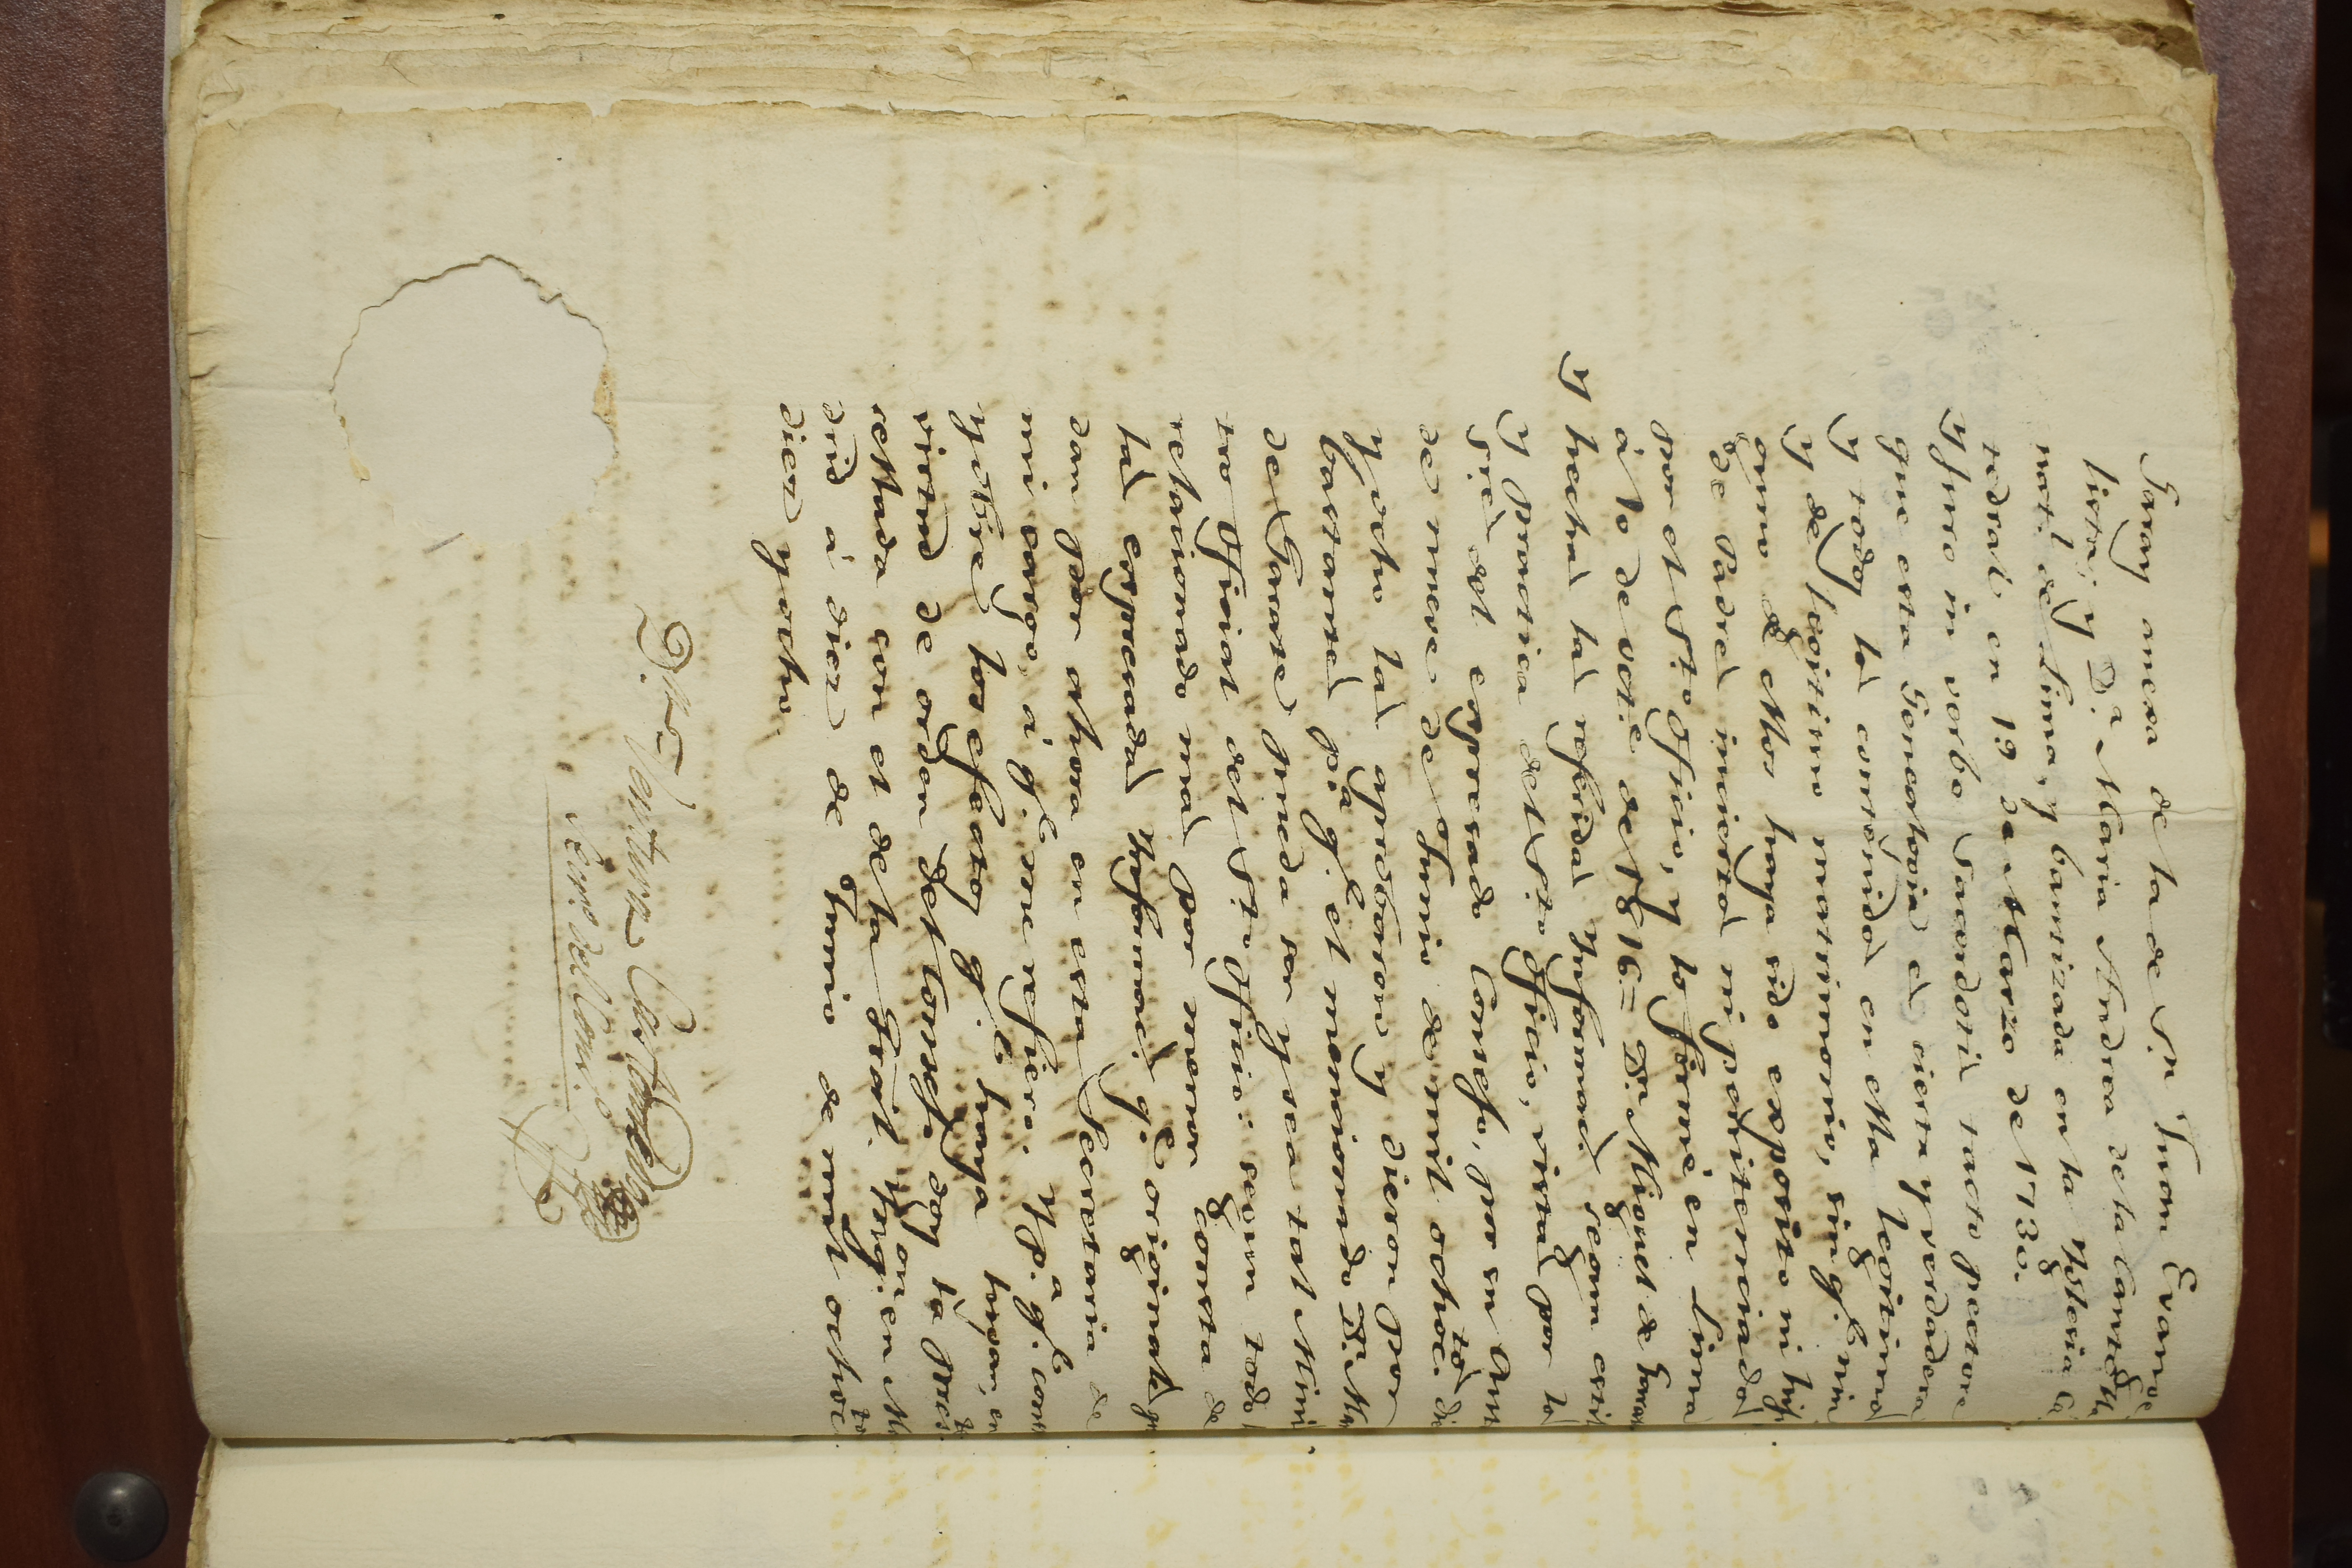 Garay anexa de la de Sn. Juan Evange
lista; y Da. Maria Andrea de la Canal
natl. de Lima, y bautizada en la Yglesia Ca
tedral, en 19 de Marzo de 1730.
Y Juro in verbo Sacerdotis tacto pectore
que esta Genealogia es cierta y verdadera
y todos los contenidos en ella legitimos
y de legitimo matrimonio, sin qe. nin
guno de ellos haya sido exposito ni hijo
de Padres inciertos ni penitenciados
por el Sto. Oficio, y lo firmé en Lima
á 10 de octe. de 1816 = Dr. Miguel de
Y hechas las referidas Ynformacs. segun estilo
y practica del Sto. Oficio, vistas por los
Sres. del expresado Consejo, por su Auto
de nueve de Junio de mil ochoctos. diez
y ocho las aprobaron y dieron por
bastantes pa. qe. el mencionado Dr.
del Garate pueda ser y sea tal Minis
tro Oficial del Sto. Oficio: segun todo lo
relacionado mas por menor consta de
las expresadas Ynformacs. qe. originales que
dan por ahora en esta Secretaria de
mi cargo, á qe. me refiero. Y pa. qe. conste
y obre los efectos qe. haya lugar, en
virtud de orden del Consejo doy la preste.
sellada con el de la Gral. Ynqon. en Ma
drid á diez de Junio de mil ochoctos.
diez y ocho.
Dn. Ventura
Secro. del Conso.